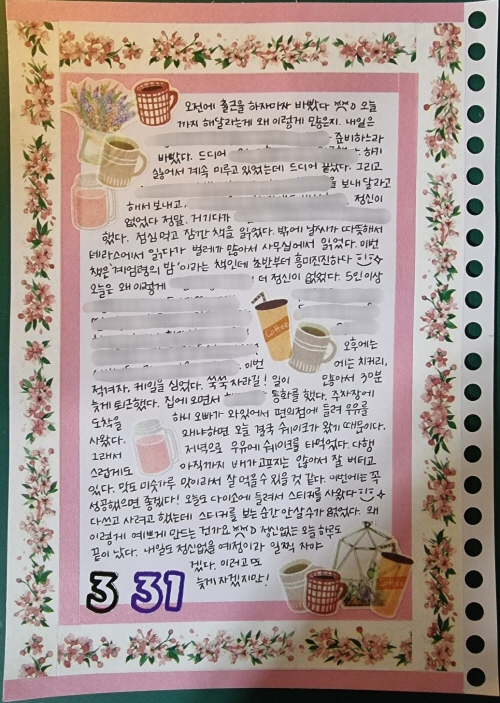 오전에 출근을 하자마자 바빴다 ㅠㅠ 오늘
까지 해달라는게 왜 이렇게 많은지. 내일은
준비하느라
바빴다. 드디어 하기
싫어서 계속 미루고 있었는데 드디어 끝났다. 그리고
를 보내달라고
해서 보내고, 정신이
없었다 정말. 거기다가
했다. 점심먹고 잠깐 책을 읽었다. 밖에 날씨가 따뜻해서
테라스에서 읽다가 벌레가 많아서 사무실에서 읽었다. 이번
책은 '계엄령의 밤' 이라는 책인데 초반부터 흥미진진하다
오늘은 왜 이렇게 더 정신이 없었다. 5인이상
오후에는
이번 에는 치커리,
적겨자, 케일을 심었다. 쑥쑥 자라길! 일이 많아서 30분
늦게 퇴근했다. 집에 오면서 통화를 했다. 주차장에
도착을 하니 오빠가 와있어서 편의점에 들려 우유를
사왔다. 왜냐하면 오늘 결국 쉐이크가 왔기 때문이다.
그래서 저녁으로 우유에 쉐이크를 타먹었다. 다행
스럽게도 아직까지 배가 고프지는 않아서 잘 버티고
있다. 맛도 미숫가루 맛이라서 잘 먹을수 있을 것 같다. 이번에는 꼭
성공했으면 좋겠다! 오늘도 다이소에 들려서 스티커를 사왔다
다쓰고 사려고 했는데 스티커를 보는 순간 안살 수가 없었다. 왜
이렇게 예쁘게 만드는 건가요 ㅠㅠ 정신없는 오늘 하루도
끝이 났다. 내일도 정신없을 예정이라 일찍 자야
겠다. 이러고 또
늦게 자겠지만!
Coffee
3 31